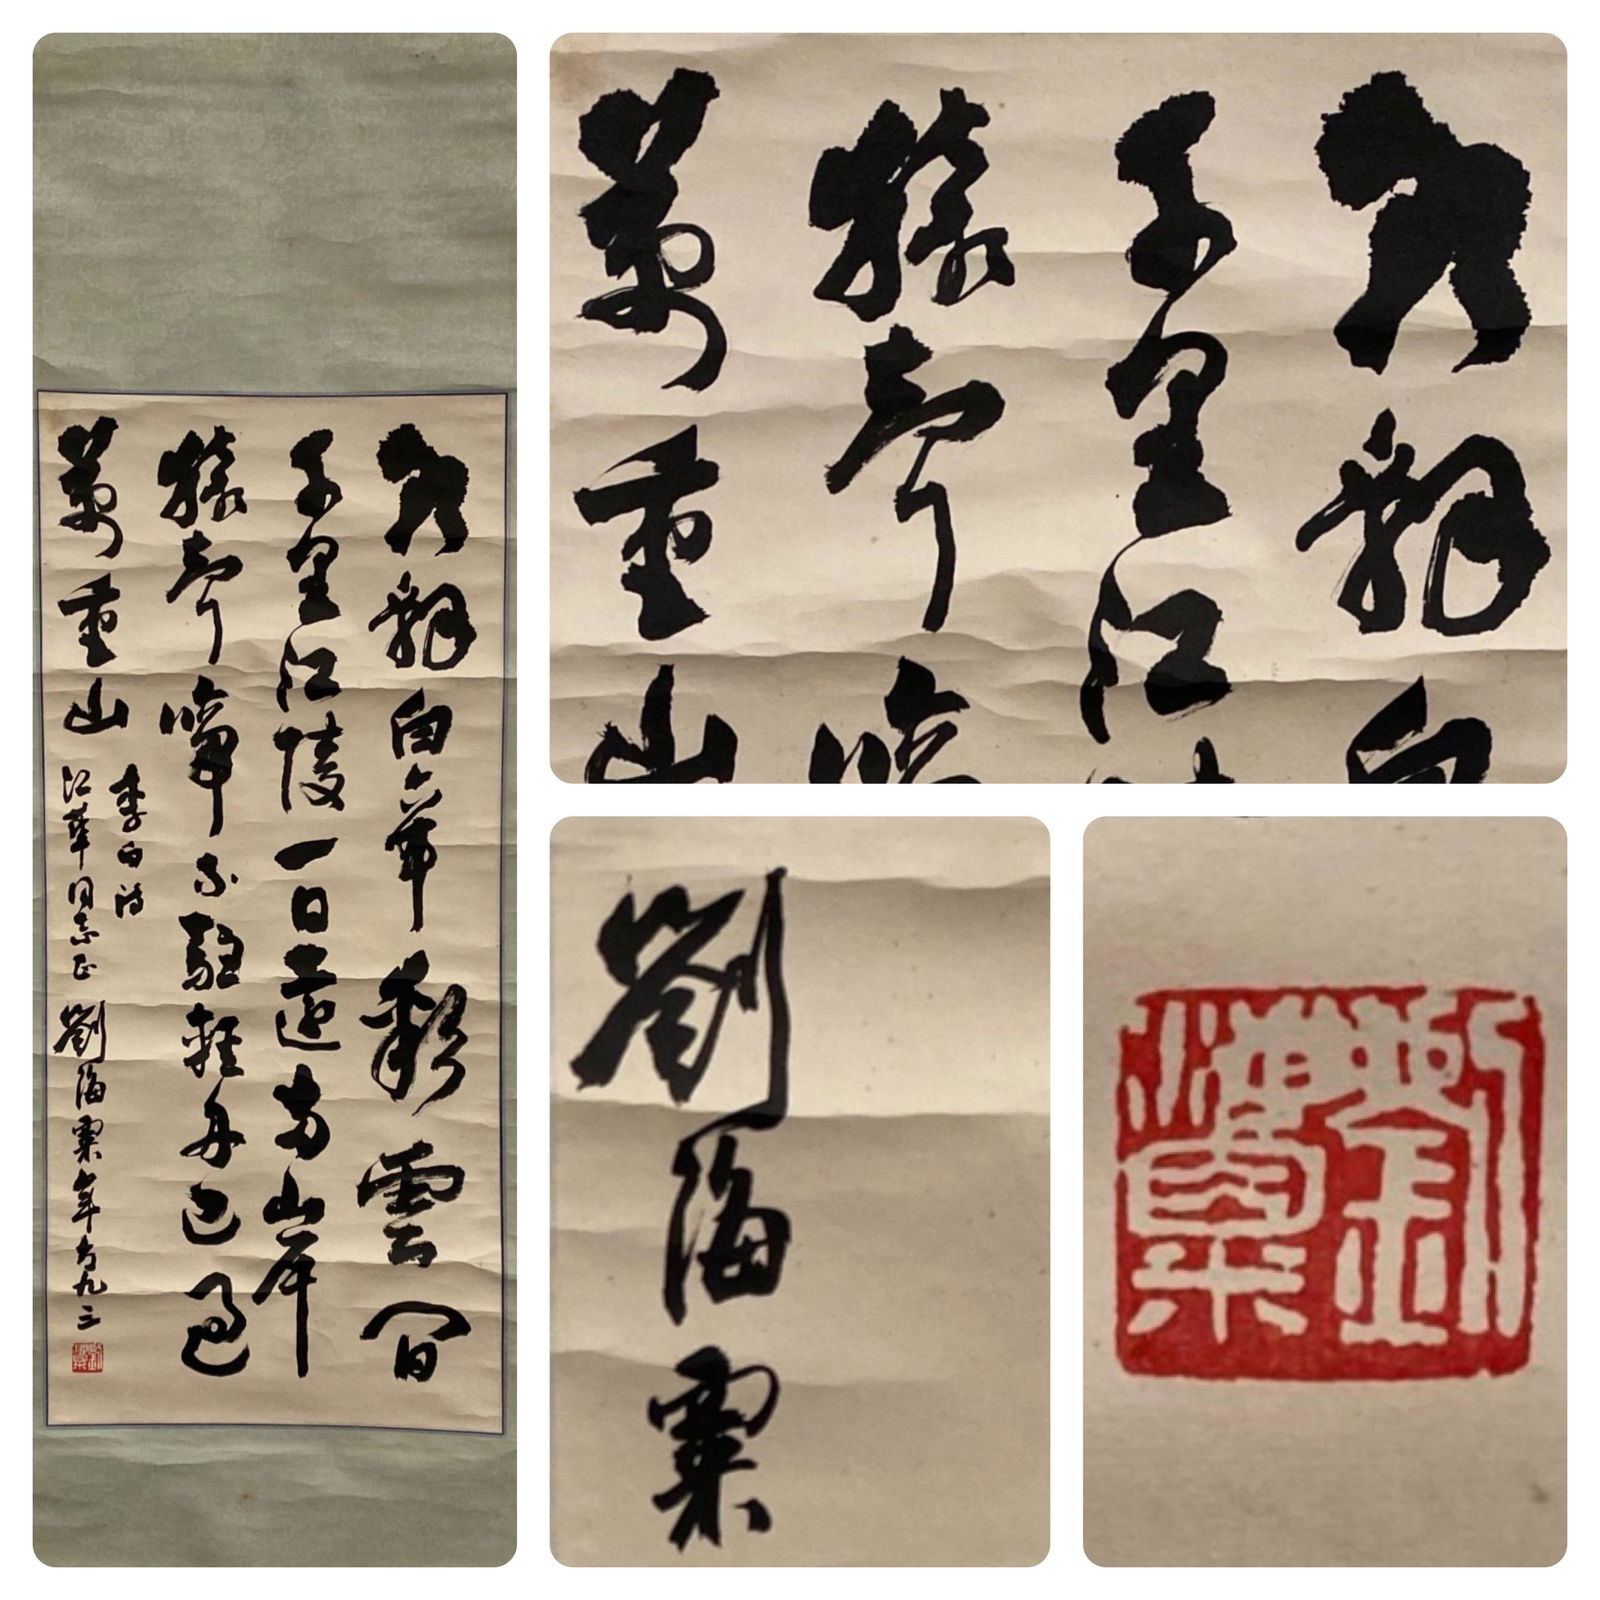 朝辭白帝彩雲間
千里江陵一日還兩岸
猿聲啼不駐輕舟已過
萬重山
李白詩
江華同志正 劉海粟年方九三
劉海粟
朝辭白
千里江
猿聲啼
萬重山
劉海粟
劉海粟